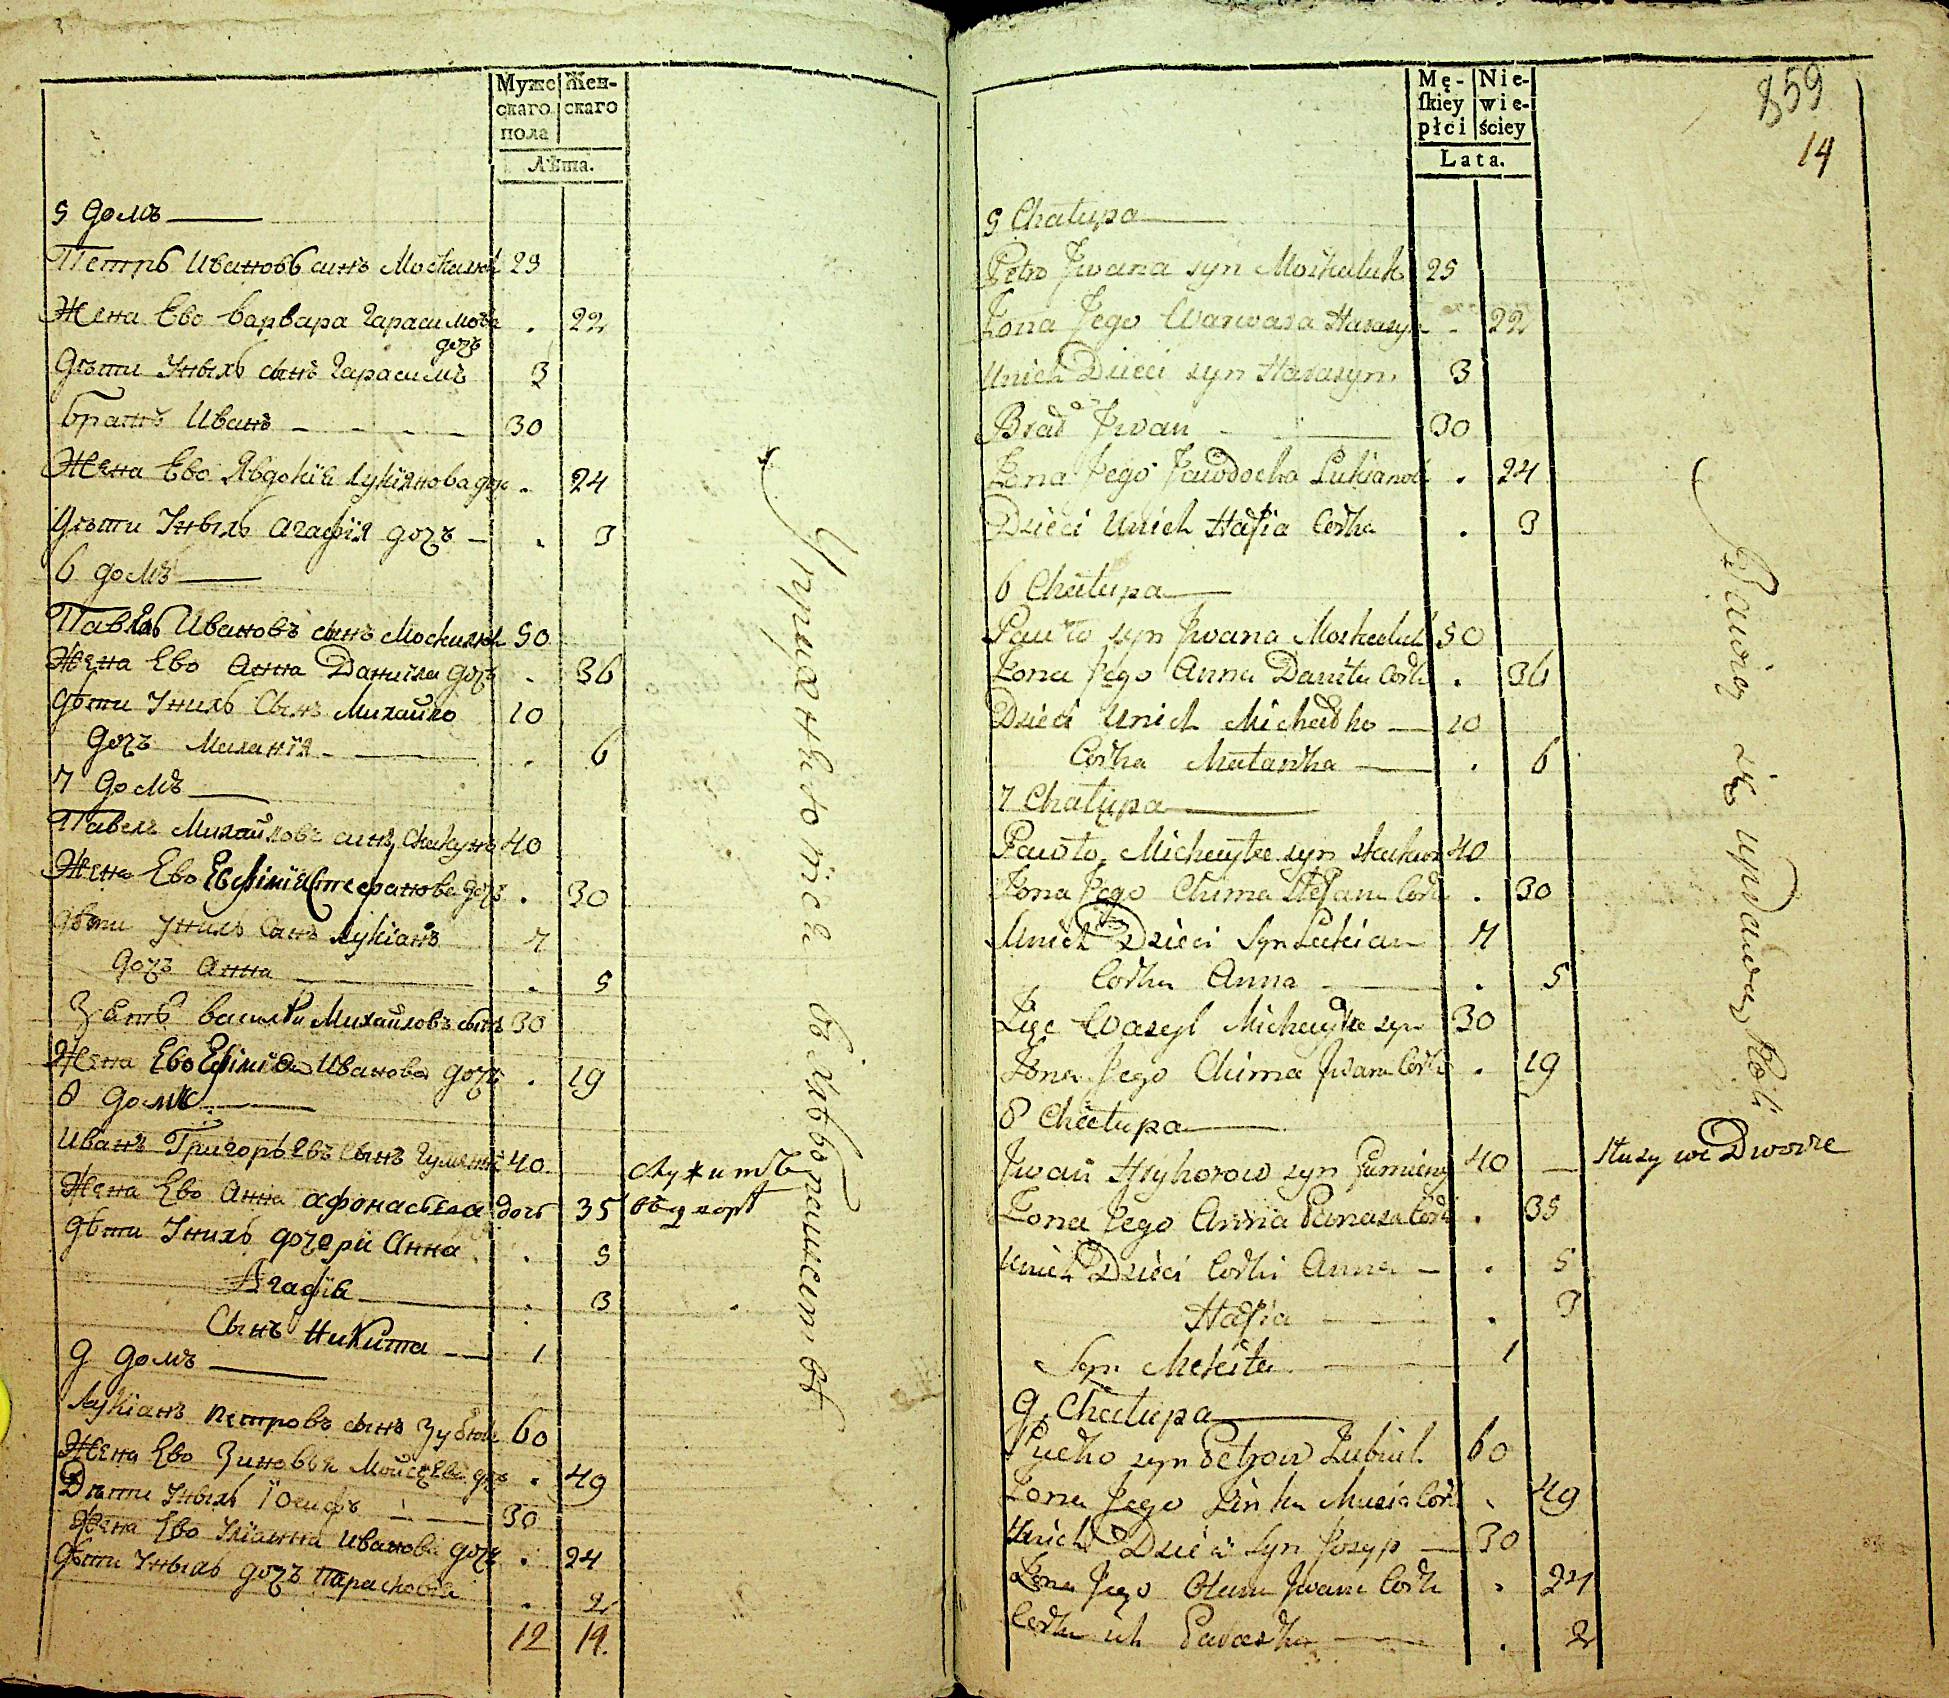 Муже-
скаго
пола
Жен-
скаго
Лѣта.
5 домъ
Петръ Ивановъ синъ Москалюк 25
Жена Ево Варвара Гарасимова . 22
дочъ
Дѣти Унихъ сынъ Гарасимъ 3
Братъ Иванъ 30
Жена Ево Явдокія Лукіянова доч . 24
Дѣти Унихъ Агафія дочъ . 3
6 домъ
Павелъ Ивановъ сынъ Москалюк 50
Жена Ево Анна Данила дочъ . 36
Дѣти Унихъ Сынъ Михайло 10
дочъ Меланія . 6
7 домъ
Павелъ Михайловъ синъ Скакунъ 40
Жена Ево Евфимія Стефанова дочъ . 30
Дѣти Унихъ Санъ Лукіанъ 7
дочъ Анна . 5
Зать василий Михайловъ сынъ 30
Жена Ево Ефіміа Иванова дочъ . 19
8 домъ
Иванъ Григорьевъ Сынъ 40
Служитъ
Жена Ево Анна афонасьева дочь 35
въ дворѣ
Дѣти Унихъ дочери Анна . 5
Агафія . 3
Сынъ Никита 1
9 домъ
Лукіанъ петровъ сынъ Зубюк 60
Жена Ево Зиновья Мойсѣева доч . 49
Дѣти Унихъ Іосифъ 30
Жена Ево Уліанна иванова дочъ . 24
Дѣти Унихъ дочъ Парасковія . 2
12 14.
Упражняютса в хлебопашествѣ
859
14
Mę-
skiey
płci
Nie-
wie-
ściey
Lata.
5 Chałupa
Petro Jwana syn Moskaluk 25
Żona Jego Warwara Harasym . 22
Unich Dzieci syn Harasym 3
Brad Jwan 30
Żona Jego Jawdocha Lukianow . 24
Dzieci Unich Hafia Corka . 3
6 Chałupa
Pawło syn Jwana Moskaluk 50
Żona Jego Anna Daniła Cork . 36
Dzieci Unich Michałko 10
Corka Małanka . 6
7 Chałupa
Pawło Michayła syn skakun 40
Żona Jego Chima Stefana Cork . 30
Unich Dzieci Syn Lukian 7
Corka Anna . 5
Zięc Wasyl Michayła syn 30
Żona Jego Chima Jwana Cork . 19
8 Chałupa
Jwan Hryhorow syn Humieny 40 służy we Dworze
Żona Jego Anna Panasa Cork . 35
Unich Dzieci Corki Anna . 5
Hafia . 3
Syn Mekita 1
9 Chałupa
syn Petrow Zubiuk 60
Żona Jego Zinka Musia Cork . 49
Unich Dzieci Syn Josyp 30
Żona Jego Olena Jwana Cork . 24
Corka ich Paraska . 2
Bawią się uprawą Roli